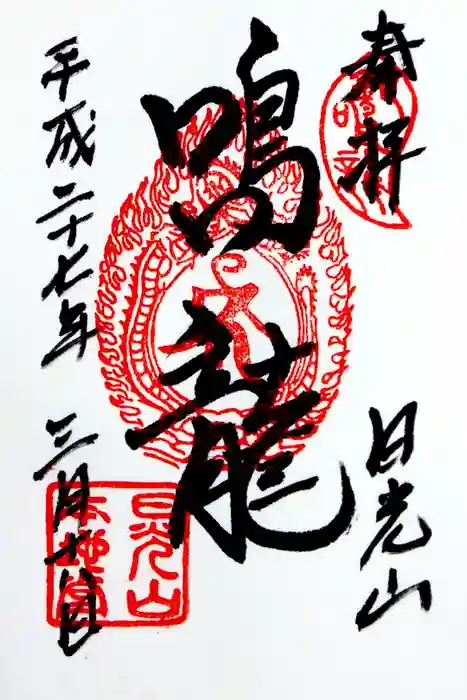 奉拝
日光山
鳴龍
平成二十七年
三月十八日
日光山
本地堂